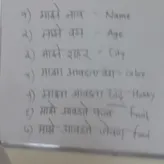 १) माझे नाव - Name
२) माझे वय - Age
३) माझे शहर - City
४) माझा आवडता रंग - color
५) माझा आवडता छंद - Hobby
६) माझे आवडते फळ - Fruit
७) माझे आवडते जेवण - Food